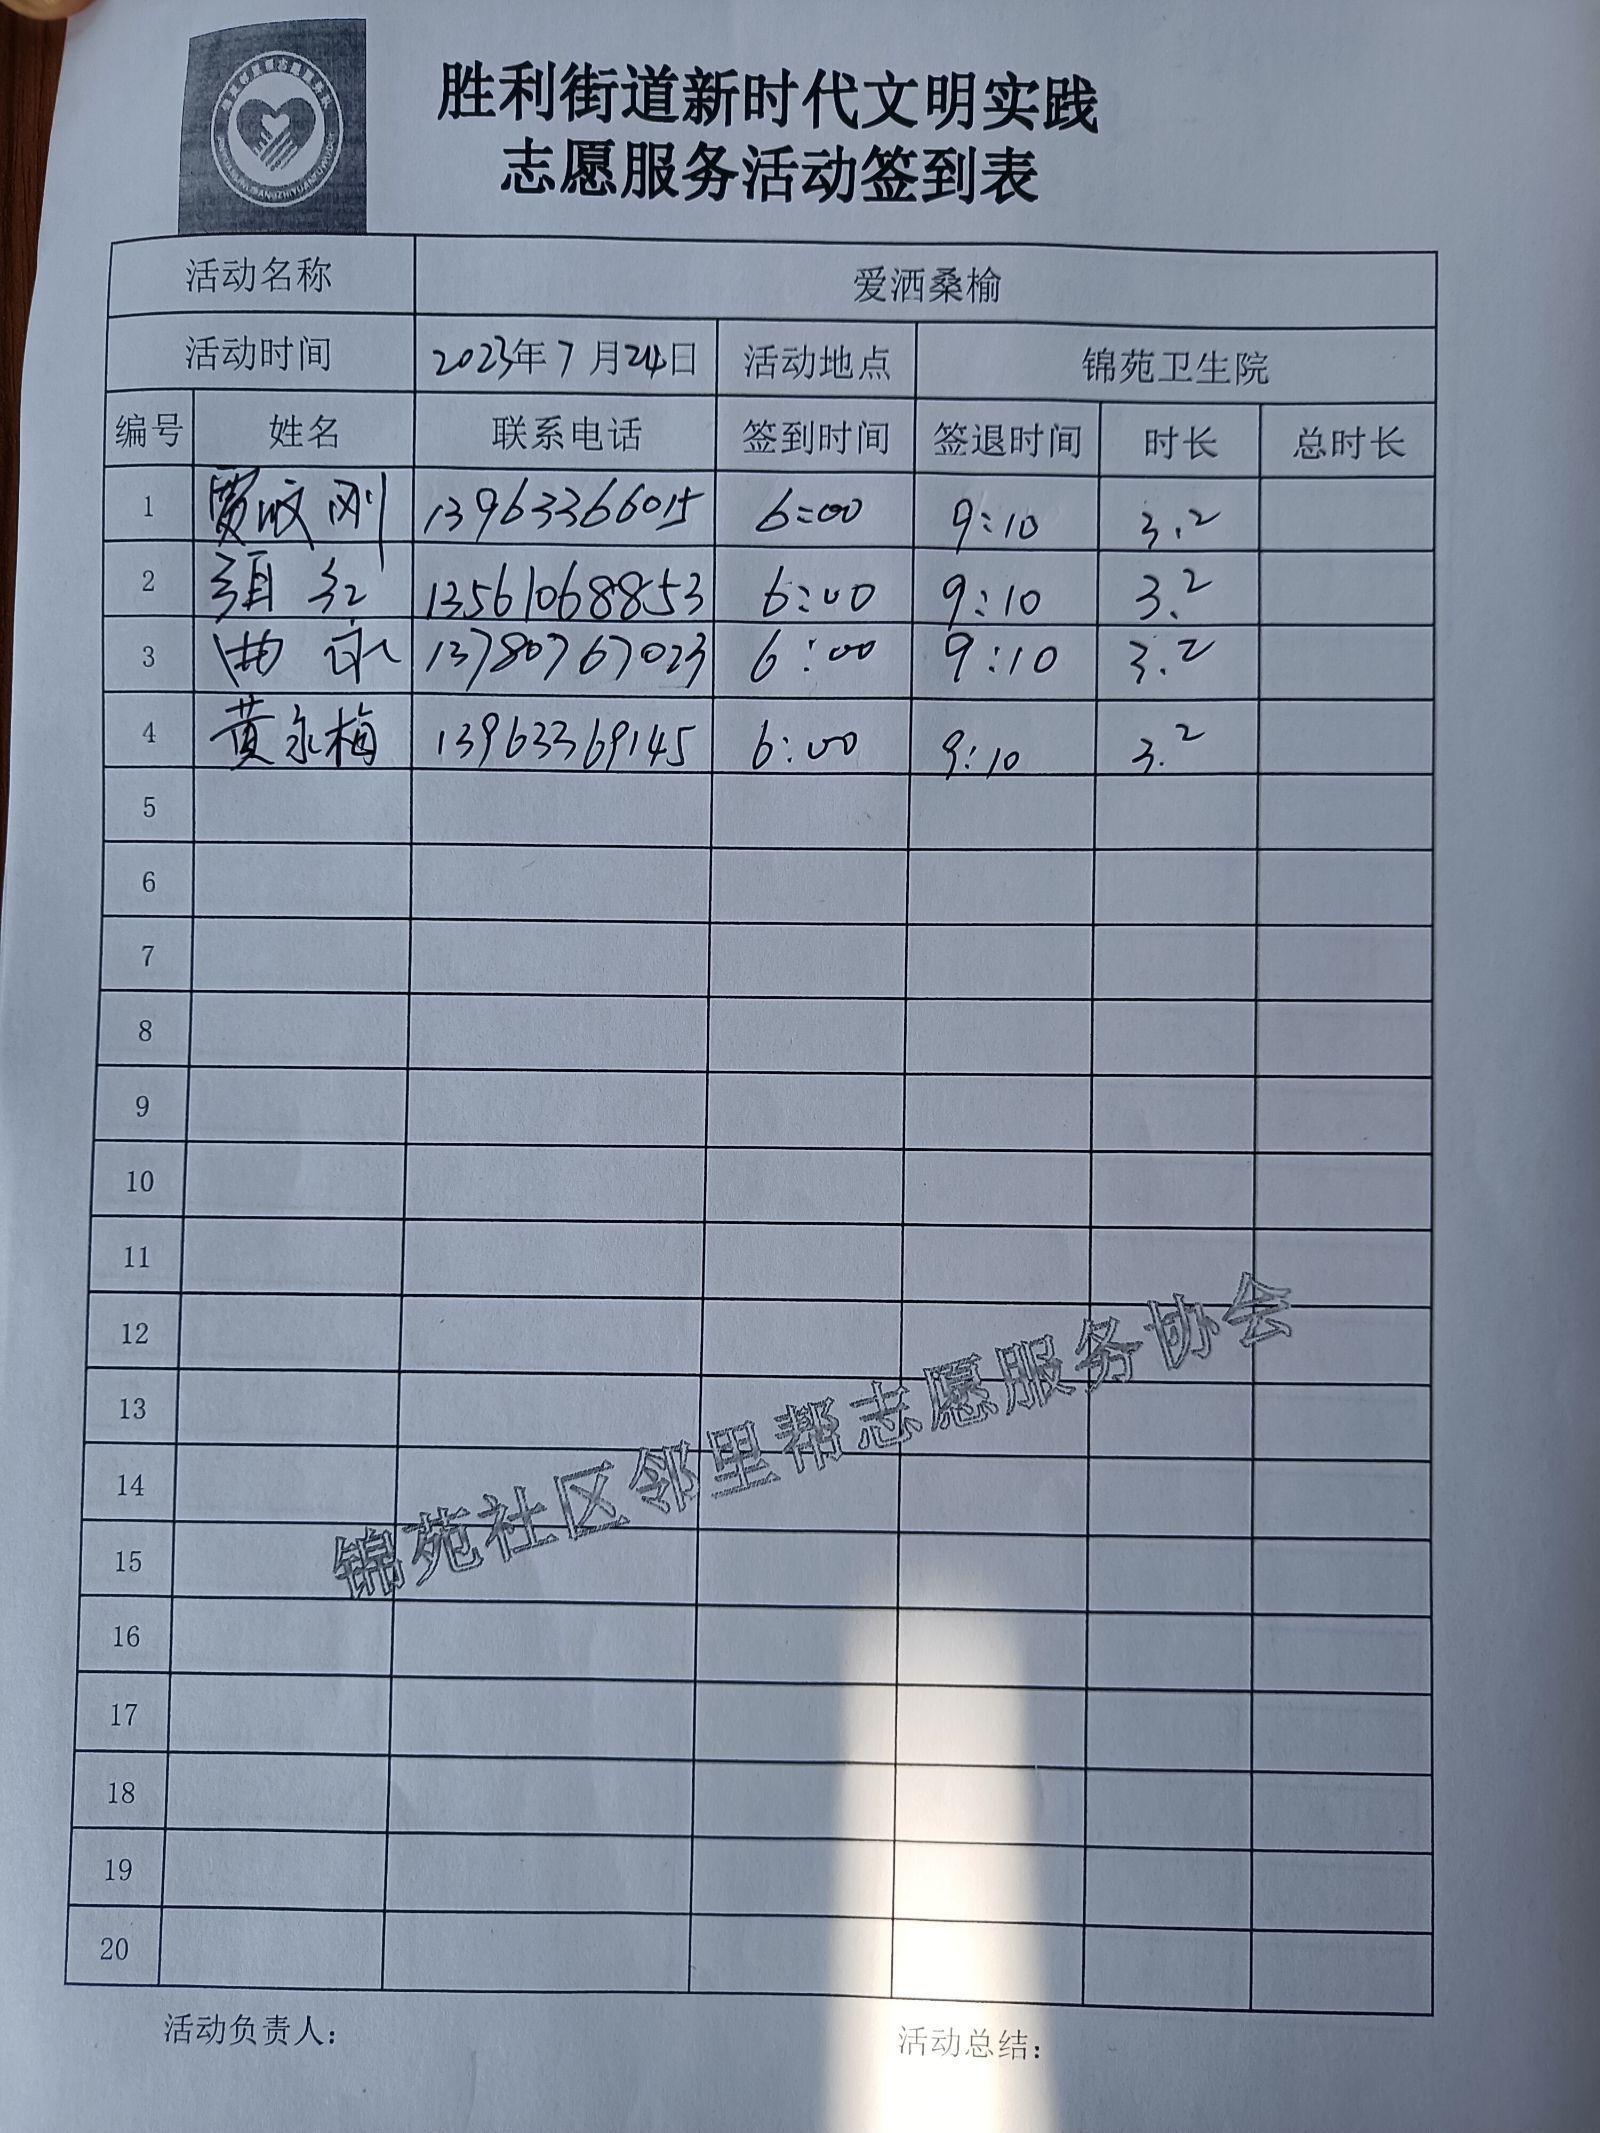 胜利街道新时代文明实践
志愿服务活动签到表
活动名称 爱洒桑榆
活动时间 2023年7月24日 活动地点 锦苑卫生院
编号 姓名 联系电话 签到时间 签退时间 时长 总时长
1 贾 刚 13963366015 6:00 9:10 3.2
2 项红 13561068853 6:00 9:10 3.2
3 曲 13780767023 6:00 9:10 3.2
4 黄永梅 13963369145 6:00 9:10 3.2
5
6
7
8
9
10
11
12
13
14
15
16
17
18
19
20
锦苑社区邻里帮志愿服务协会
活动负责人： 活动总结：